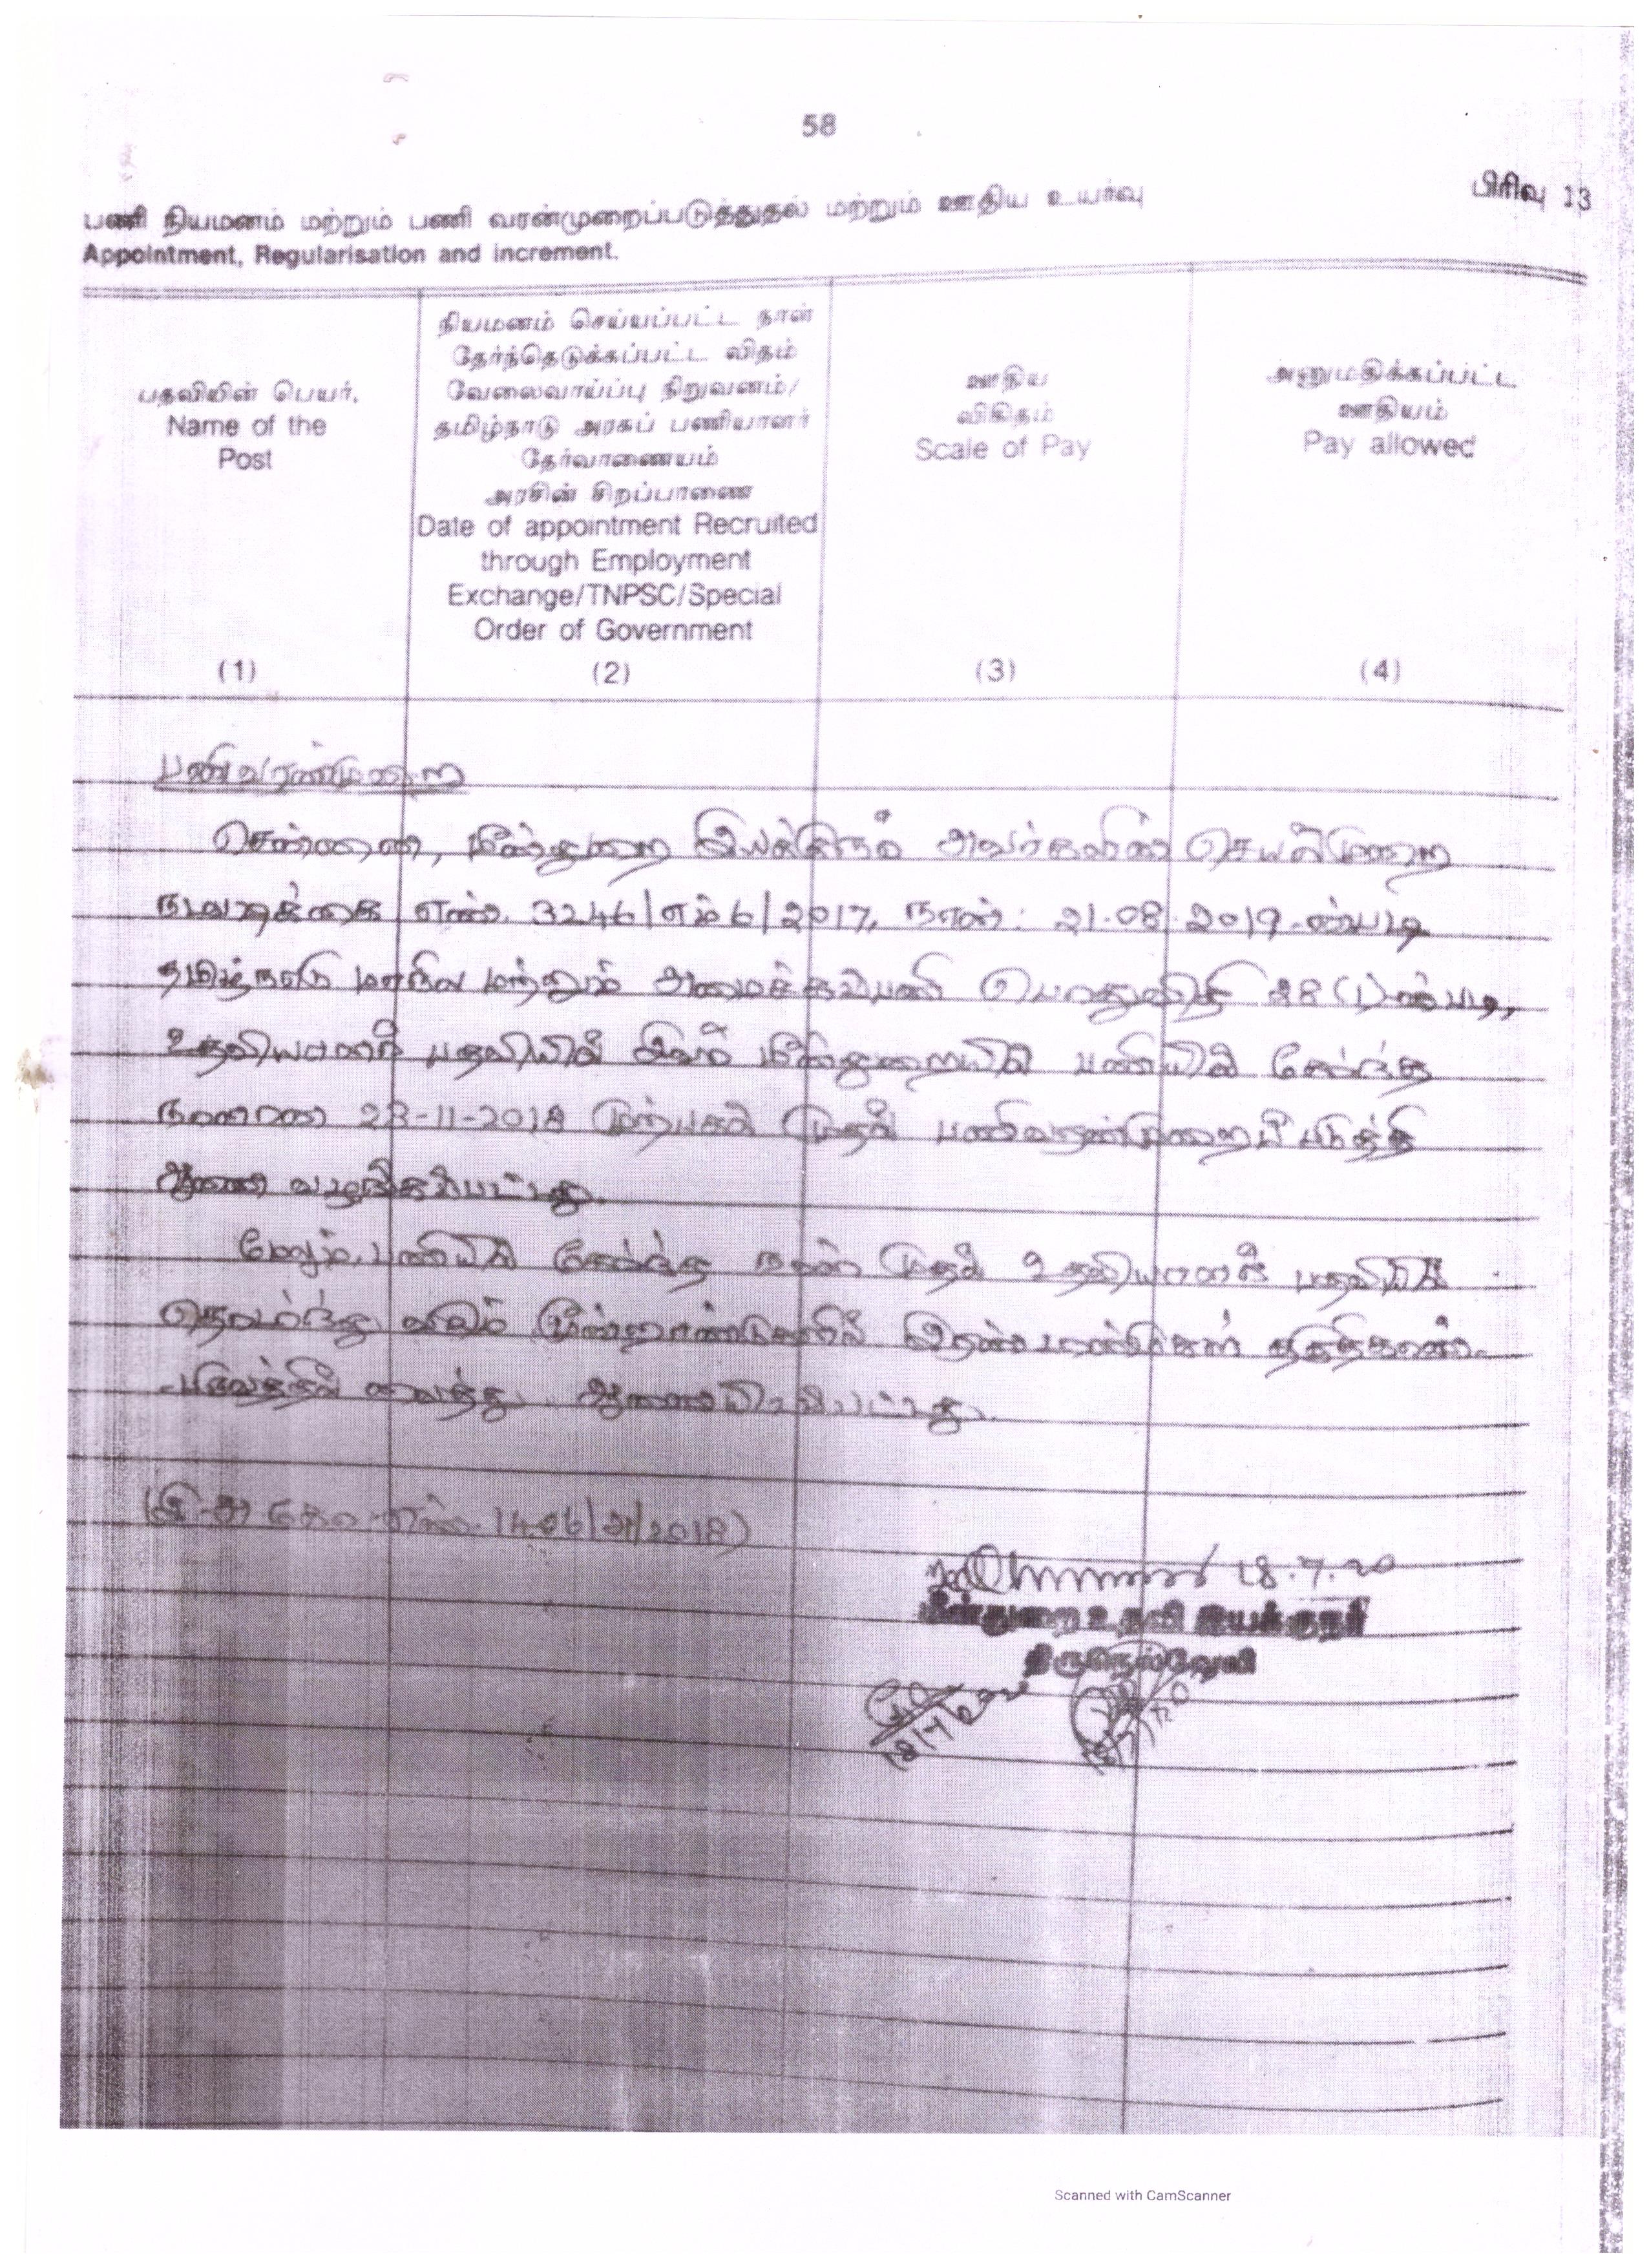 58
பிரிவு 13
பணி நியமனம் மற்றும் பணி வரன்முறைப்படுத்துதல் மற்றும் ஊதிய உயர்வு
Appointment, Regularisation and increment.
பதவியின் பெயர்.
Name of the
Post
(1)
நியமனம் செய்யப்பட்ட நாள்
தேர்ந்தெடுக்கப்பட்ட விதம்
வேலைவாய்ப்பு நிறுவனம்/
தமிழ்நாடு அரசுப் பணியாளர்
தேர்வாணையம்
அரசின் சிறப்பாணை
Date of appointment Recruited
through Employment
Exchange/TNPSC/Special
Order of Government
(2)
ஊதிய
விகிதம்
Scale of Pay
(3)
அனுமதிக்கப்பட்ட
ஊதியம்
Pay allowed
(4)
பணிவரண்முறை
சென்னை, மீன்துறை இயக்குநர் அவர்களின் செயல்முறை
நடவடிக்கை எண். 3246/எம்6/2017, நாள்: 21.08.2019-ன்படி
தமிழ்நாடு மாநில மற்றும் அமைச்சுப்பணி பொதுவிதி 28(1)-ன்படி,
உதவியாளர் பதவியில் இவர் மீன்துறையில் பணியில் சேர்ந்த
நாளான 23-11-2018 முற்பகல் முதல் பணிவரண்முறைப் படுத்தி
ஆணை வழங்கப்பட்டது.
மேலும், பணியில் சேர்ந்த நாள் முதல் உதவியாளர் பதவியில்
தொடர்ந்து வரும் மூன்றாண்டுகளில் இரண்டாண்டுகள் தகுதிகாண்
பருவத்தில் வைத்து ஆணையிடப்பட்டது.
18.7.20
மீன்துறை உதவி இயக்குநர்
திருநெல்வேலி
Scanned with CamScanner